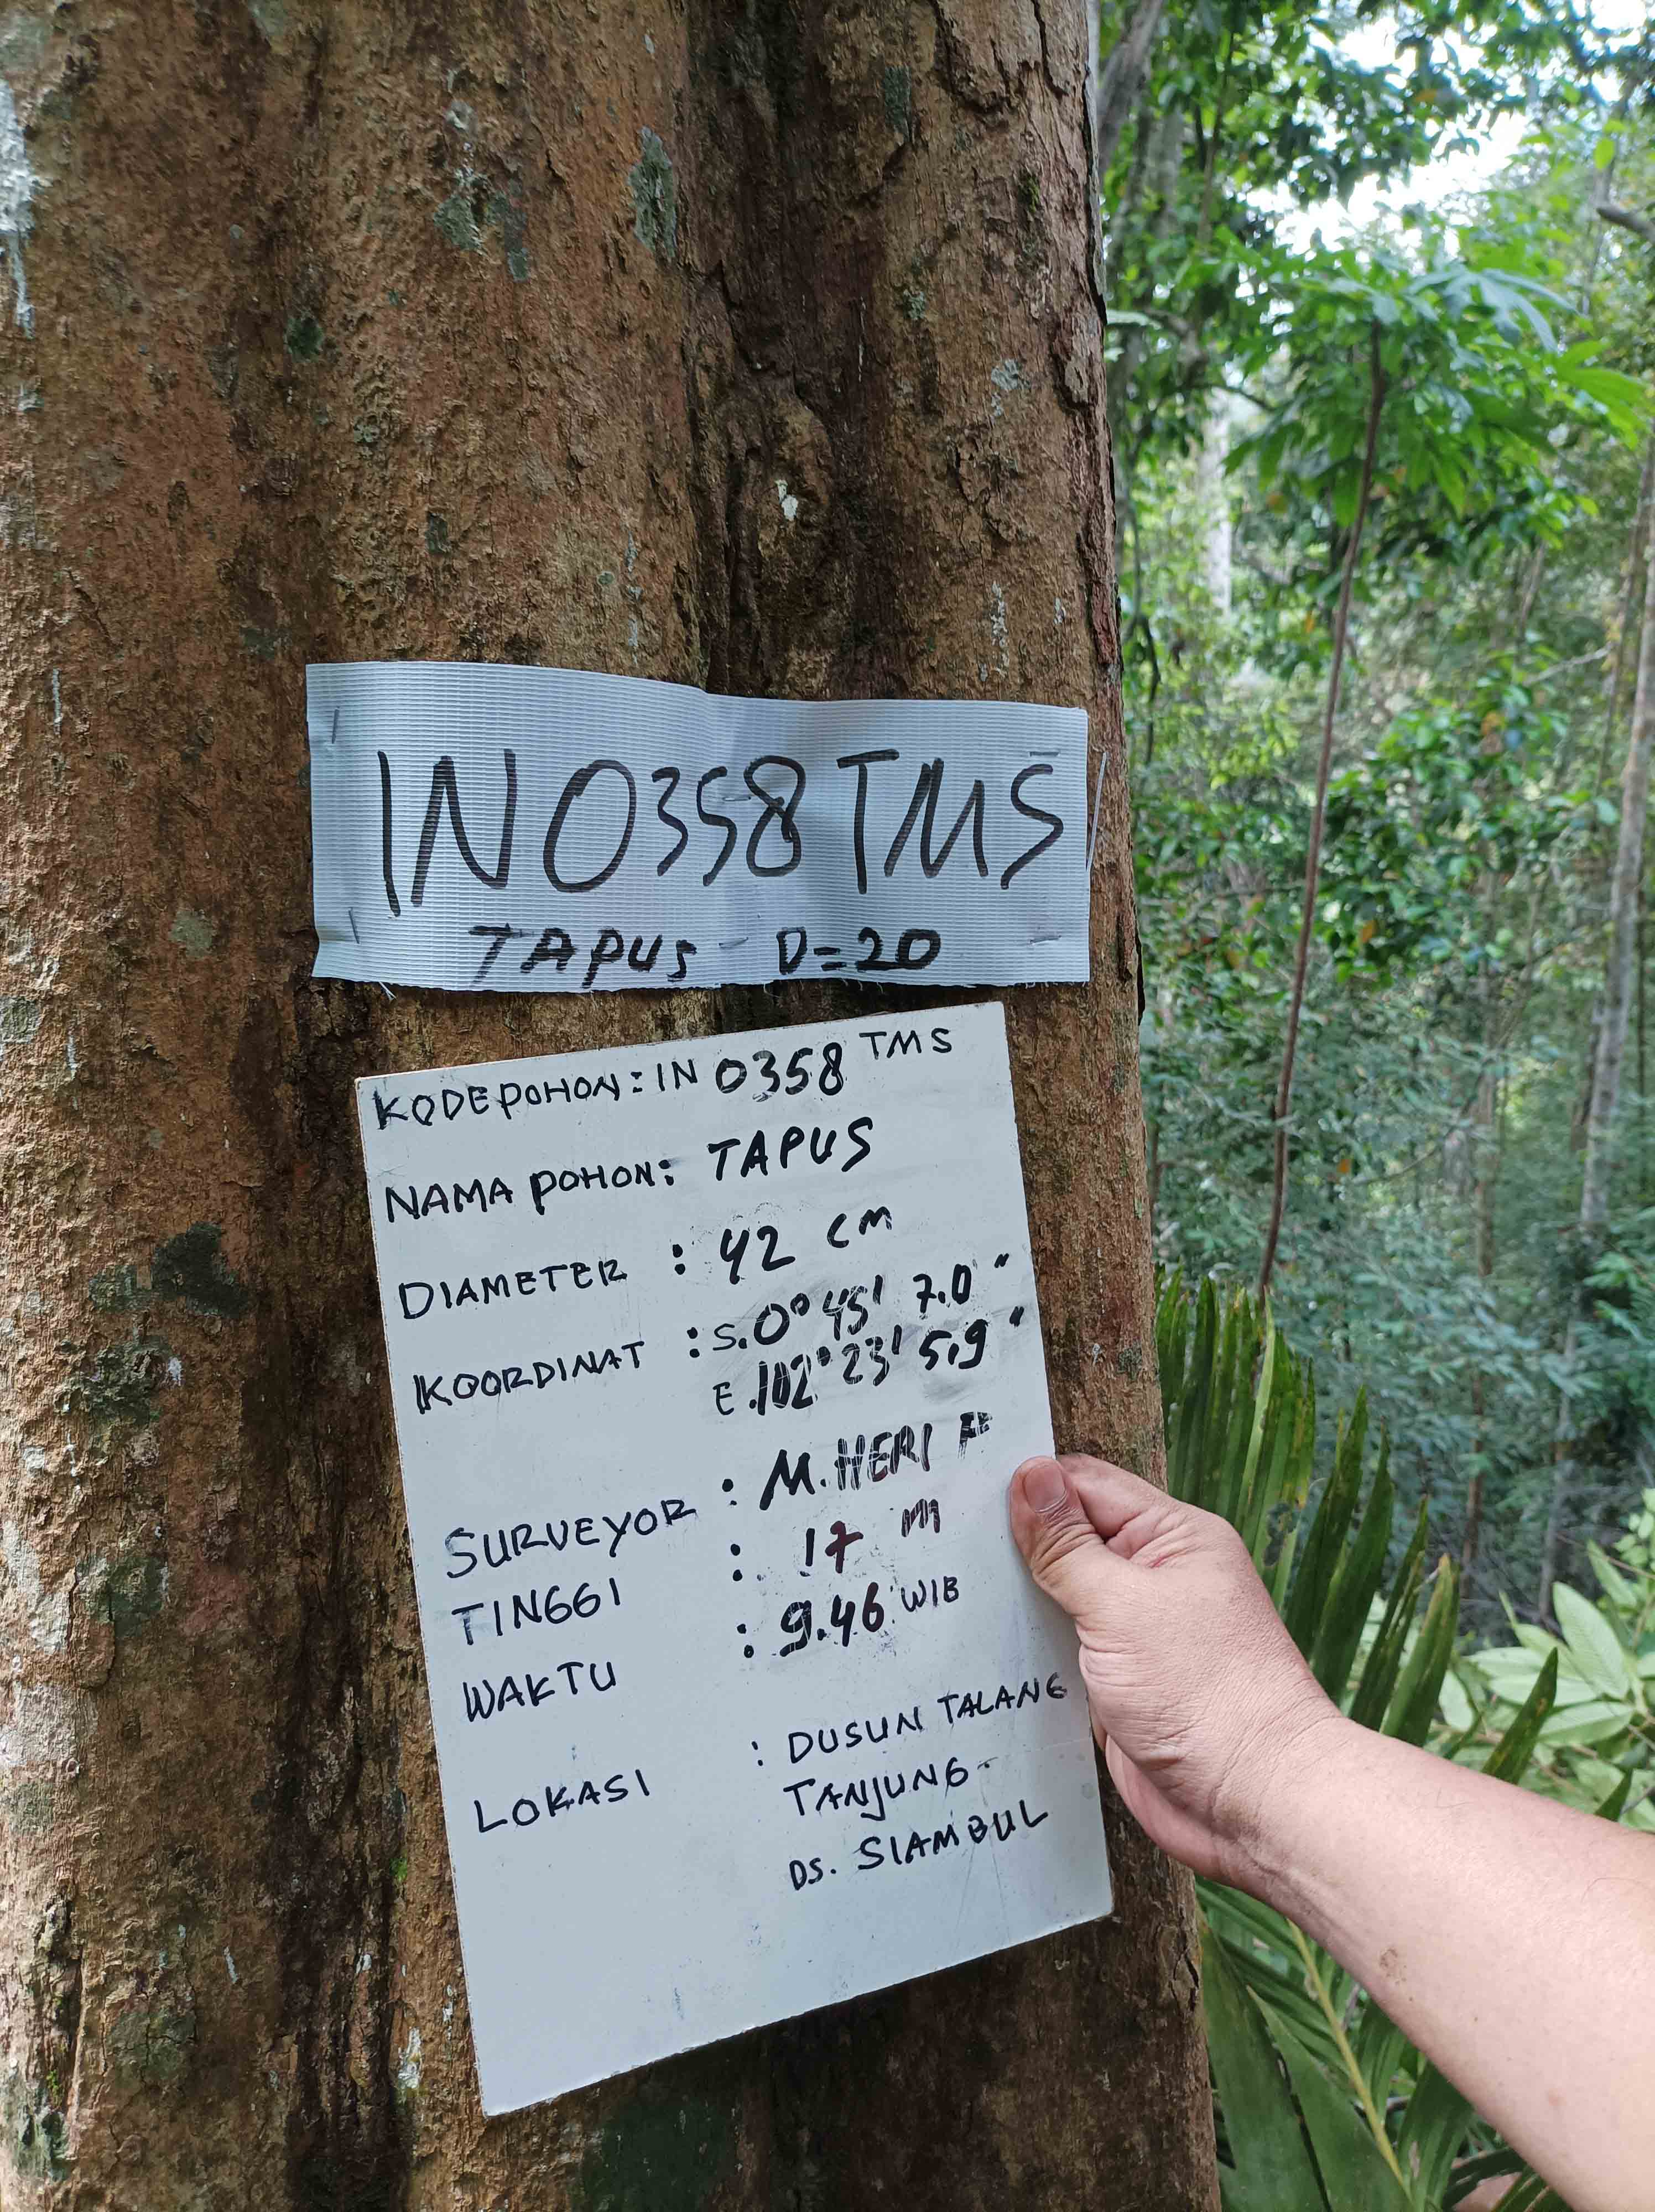 IN0358TMS
TAPUS D=20
KODE POHON : IN 0358 TMS
NAMA POHON : TAPUS
DIAMETER : 42 CM
KOORDINAT : S. 0° 45' 7.0"
E. 102° 23' 5,9"
SURVEYOR : M. HERI P
TINGGI : 17 m
WAKTU : 9.46 WIB
LOKASI : DUSUN TALANG
TANJUNG-
DS. SIAMBUL